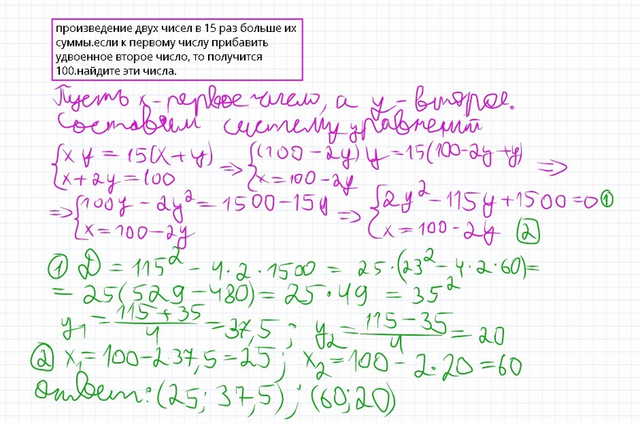 произведение двух чисел в 15 раз больше их
суммы.если к первому числу прибавить
удвоенное второе число, то получится
100.найдите эти числа.
Пусть x-первое число, а y-второе.
Составим систему уравнений
{xy = 15(x+y) {x+2y = 100 => {(100-2y)y = 15(100-2y+y) {x = 100-2y =>
=> {100y - 2y² = 1500-15y {x = 100-2y => {2y² - 115y + 1500 = 0 ① {x = 100-2y 2
① D = 115² - 4·2·1500 = 25·(23² - 4·2·60) =
= 25(529-480) = 25·49 = 35²
y₁ = (115+35)/4 = 37,5; y₂ = (115-35)/4 = 20
② x₁ = 100-2·37,5 = 25; x₂ = 100-2·20 = 60
ответ: (25; 37,5); (60; 20)